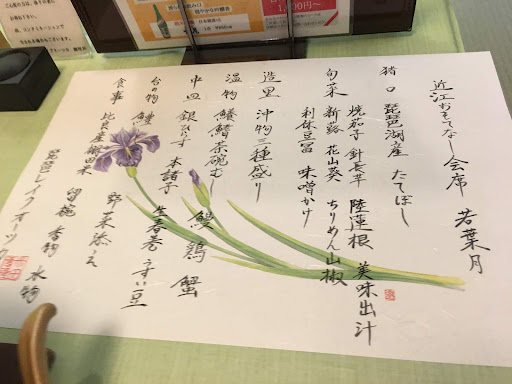 近江おもてなし会席 若葉月
猪口 琵琶湖産 たてぼし
焼茄子 針長芋 陸蓮根 美味出汁
旬菜 新蕗 花山葵 ちりめん山椒
利休豆冨 味噌かけ
造里 沖物三種盛り
温物 鱶鰭茶碗むし
中皿 銀ひらす 本諸子 鰻 鶏 蟹
生春巻 うすい豆
台の物
野菜添え
食事 比良産棚田米 留椀 香物 水物
琵琶レイクオーツカ